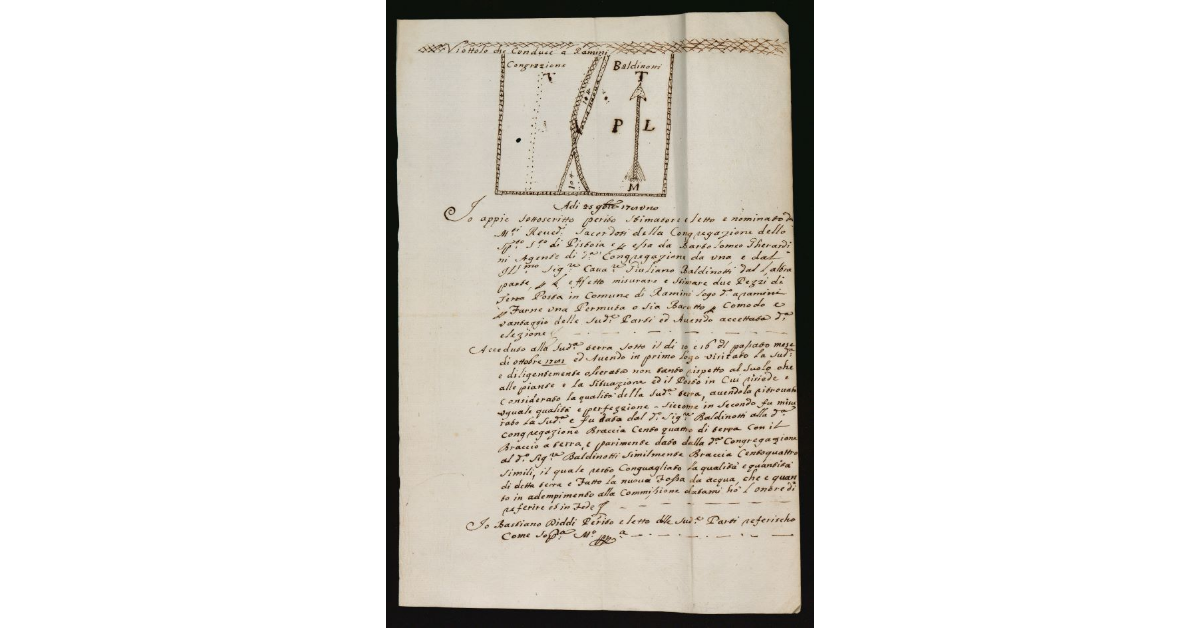 Viottolo che Conduce a Ramini
Congrazione Baldinotti
V T
V P L
M
Adi 25 9bre 1701 uno
Io appie sottoscritto perito Stimatore eletto e nominato da
Mti Reved: Sacerdoti della Congregazione dello
Spto Sto di Pistoia e p essa da Bartolomeo Gherardi
ni Agente di da Congregazione da una e dal
Illmo Sigre Cavare Giuliano Baldinotti dal l'altra
parte, p l'effetto misurare e stimare due Pezzi di
Terra Posta in Comune di Ramini logo do a ramini
p Farne una Permuta o sia Baratto p Comodo e
vantaggio delle Sude Parti ed Avendo accettata da
elezione
Acceduto alla Suda terra sotto il di 10 e 16 dl passato mese
di ottobre 1701 ed Avendo in primo logo visitato la Suda
e diligentemente oservato non tanto rispetto al suolo che
alle piante e la Situazione ed il Posto in Cui risiede e
Considerato la qualità della Suda terra, avendola ritrovata
uguale qualità e perfezzione - siccome in Secondo fu misu
rato la Suda e fu dato dal do Sigre Baldinotti alla da
Congregazione Braccia Cento quattro di terra Con il
Braccio a terra, e parimente dato dalla da Congregazione
al do Sigre Baldinotti similmente Braccia Centoquattro
simili, il quale resto Conguagliato la qualità e quantità
di detta terra e Fatto la nuova Fossa da acqua, che e quan
to in adempimento alla Commissione datami ho l'onore di
referire ed in Fede
Io Bastiano Diddi Perito eletto dlle Sude Parti referischo
Come Sopa Mo ppa